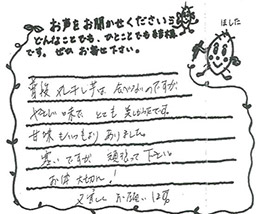 お声をお聞かせください
どんなことでも、ひとことでも結構
です。ぜひ お寄せ下さい。
ほした
普段 丸干し芋は 食べないのですが
やさしい味で とても 美味です
甘味もいつもより ありました。
寒いですが 頑張って下さい
お体 大切に!
又 お願い